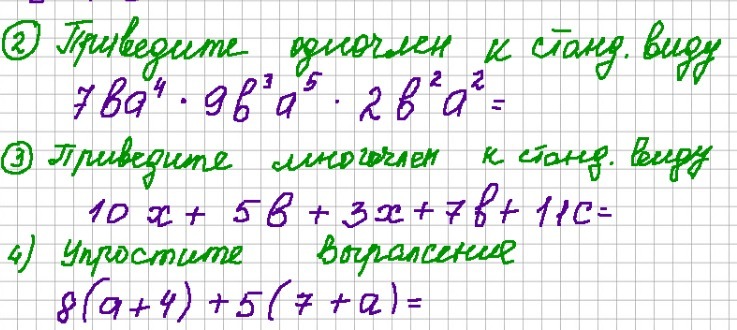 ② Приведите одночлен к станд. виду
7ва⁴ · 9в³а⁵ · 2в²а² =
③ Приведите многочлен к станд. виду
10x + 5в + 3x + 7в + 11с =
4) Упростите выражение
8(а+4) + 5(7+а) =